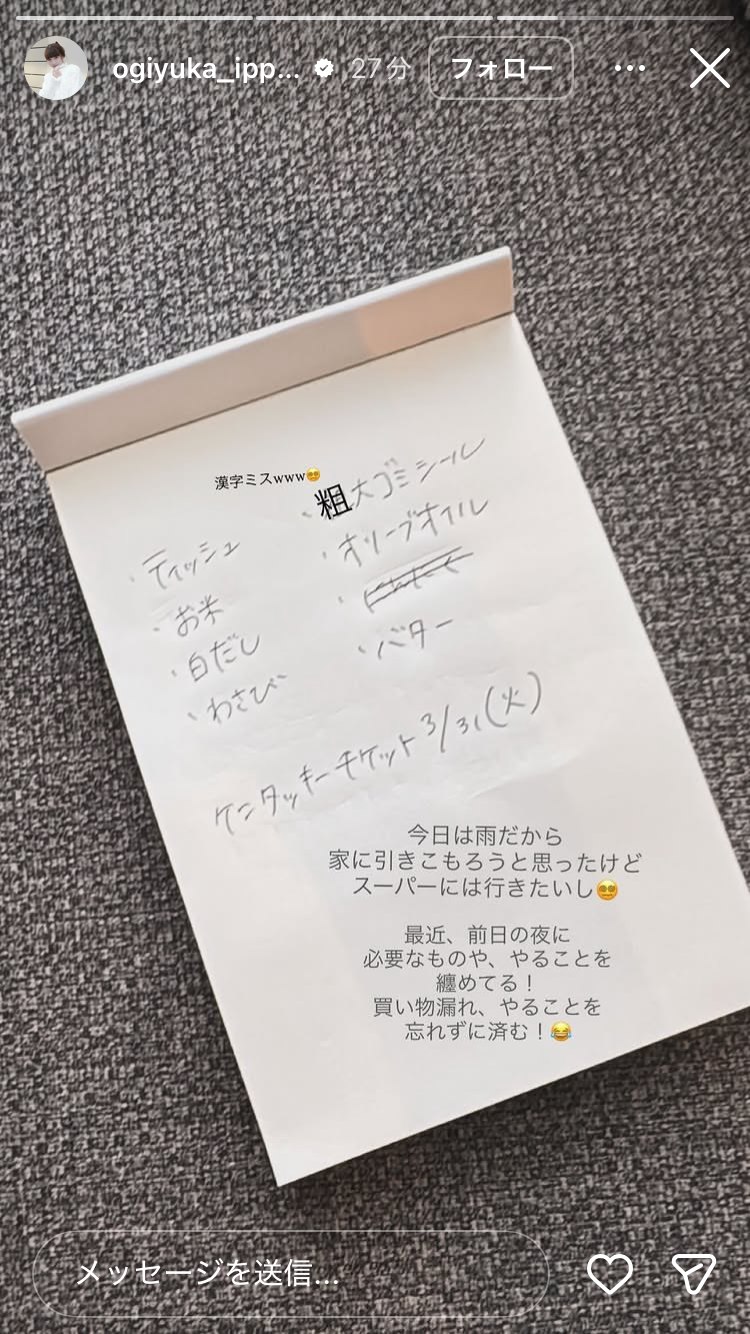 ogiyuka_ipp...
27分
フォロー
漢字ミスwww😵‍💫
・粗大ゴミシール
・オリーブオイル
・バター
・ティッシュ
・お米
・白だし
・わさび
ケンタッキーチケット 3/31(火)
今日は雨だから
家に引きこもろうと思ったけど
スーパーには行きたいし😵‍💫
最近、前日の夜に
必要なものや、やることを
纏めてる！
買い物漏れ、やることを
忘れずに済む！😂
メッセージを送信...